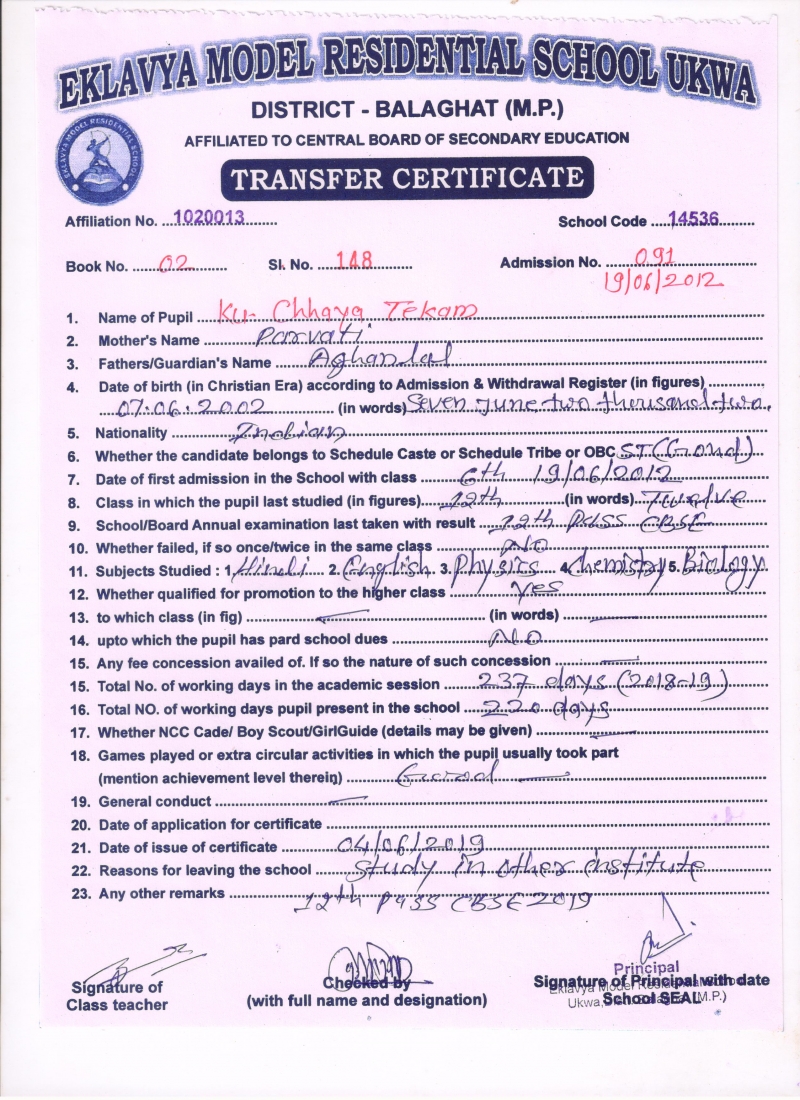 EKLAVYA MODEL RESIDENTIAL SCHOOL UKWA
DISTRICT - BALAGHAT (M.P.)
EKLAVYA MODEL RESIDENTIAL SCHOOL
AFFILIATED TO CENTRAL BOARD OF SECONDARY EDUCATION
TRANSFER CERTIFICATE
Affiliation No. ...1020013........ School Code ....14536.........
Book No. .......02....... Sl. No. ....148.......... Admission No. ......091........
19/06/2012
1. Name of Pupil ...Ku. Chhaya Tekam
2. Mother's Name ..........Parvati
3. Fathers/Guardian's Name ........Aghanlal
4. Date of birth (in Christian Era) according to Admission & Withdrawal Register (in figures) ..............
....07.06.2002................ (in words) Seven June two thousand two.
5. Nationality ..............Indian
6. Whether the candidate belongs to Schedule Caste or Schedule Tribe or OBC ST (Gond)
7. Date of first admission in the School with class ..........6th 19/06/2012
8. Class in which the pupil last studied (in figures)......12th..............(in words)..Twelve
9. School/Board Annual examination last taken with result .....12th Pass CBSE
10. Whether failed, if so once/twice in the same class ...........NO
11. Subjects Studied : 1. Hindi.... 2. English. 3. Physics 4. Chemistry 5. Biology
12. Whether qualified for promotion to the higher class ...........Yes
13. to which class (in fig) ...................... (in words) ......................
14. upto which the pupil has pard school dues ................NO
15. Any fee concession availed of. If so the nature of such concession ......................
15. Total No. of working days in the academic session ......237 days (2018-19)
16. Total NO. of working days pupil present in the school ....220 days
17. Whether NCC Cade/ Boy Scout/GirlGuide (details may be given) ......................
18. Games played or extra circular activities in which the pupil usually took part
(mention achievement level therein) ..........Good
19. General conduct ......................
20. Date of application for certificate ......................
21. Date of issue of certificate ........04/06/2019
22. Reasons for leaving the school ........Study in other institute
23. Any other remarks ..............12th Pass CBSE 2019
Signature of
Class teacher
Checked by
(with full name and designation)
Principal
Signature of Principal with date
Eklavya Model Residential
School SEAL
Ukwa, (M.P.)